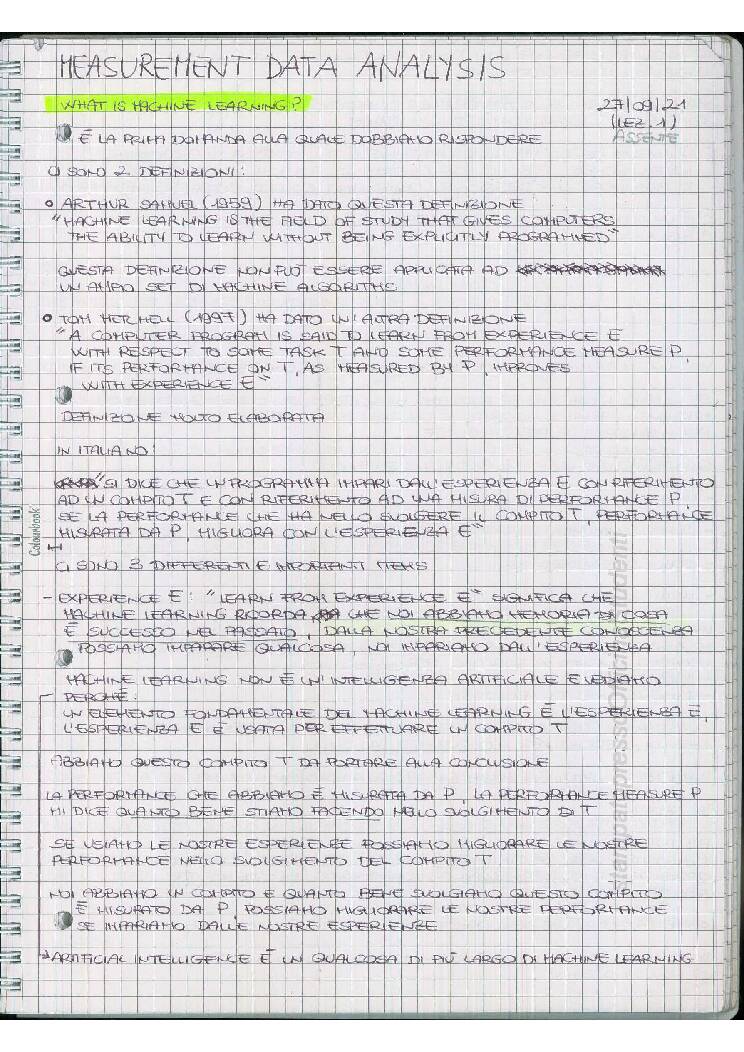 MEASUREMENT DATA ANALYSIS
WHAT IS MACHINE LEARNING?
27/09/21
(LEZ. 1)
ASSENTE
È LA PRIMA DOMANDA ALLA QUALE DOBBIAMO RISPONDERE
CI SONO 2 DEFINIZIONI:
ARTHUR SAMUEL (1959) HA DATO QUESTA DEFINIZIONE
"MACHINE LEARNING IS THE FIELD OF STUDY THAT GIVES COMPUTERS
THE ABILITY TO LEARN WITHOUT BEING EXPLICITLY PROGRAMMED"
QUESTA DEFINIZIONE NON PUÒ ESSERE APPLICATA AD
UN AMPIO SET DI MACHINE ALGORITHS
TOM MITCHELL (1997) HA DATO UN'ALTRA DEFINIZIONE
"A COMPUTER PROGRAM IS SAID TO LEARN FROM EXPERIENCE E
WITH RESPECT TO SOME TASK T AND SOME PERFORMANCE MEASURE P,
IF ITS PERFORMANCE ON T, AS MEASURED BY P, IMPROVES
WITH EXPERIENCE E"
DEFINIZIONE MOLTO ELABORATA
IN ITALIANO:
"SI DICE CHE UN PROGRAMMA IMPARI DALL'ESPERIENZA E CON RIFERIMENTO
AD UN COMPITO T E CON RIFERIMENTO AD UNA MISURA DI PERFORMANCE P,
SE LA PERFORMANCE CHE HA NELLO SVOLGERE IL COMPITO T, PERFORMANCE
MISURATA DA P, MIGLIORA CON L'ESPERIENZA E"
Colourbook
CI SONO 3 DIFFERENTI E IMPORTANTI ITEMS
- EXPERIENCE E: "LEARN FROM EXPERIENCE E" SIGNIFICA CHE
MACHINE LEARNING RICORDA CHE NOI ABBIAMO MEMORIA DI COSA
È SUCCESSO NEL PASSATO, DALLA NOSTRA PRECEDENTE CONOSCENZA
POSSIAMO IMPARARE QUALCOSA, NOI IMPARIAMO DALL'ESPERIENZA
MACHINE LEARNING NON È UN'INTELLIGENZA ARTIFICIALE E VEDIAMO
PERCHÉ:
UN ELEMENTO FONDAMENTALE DEL MACHINE LEARNING È L'ESPERIENZA E,
L'ESPERIENZA E È USATA PER EFFETTUARE UN COMPITO T
ABBIAMO QUESTO COMPITO T DA PORTARE ALLA CONCLUSIONE
LA PERFORMANCE CHE ABBIAMO È MISURATA DA P, LA PERFORMANCE MEASURE P
MI DICE QUANTO BENE STIAMO FACENDO NELLO SVOLGIMENTO DI T
SE USIAMO LE NOSTRE ESPERIENZE POSSIAMO MIGLIORARE LE NOSTRE
PERFORMANCE NELLO SVOLGIMENTO DEL COMPITO T
NOI ABBIAMO UN COMPITO E QUANTO BENE SVOLGIAMO QUESTO COMPITO
È MISURATO DA P, POSSIAMO MIGLIORARE LE NOSTRE PERFORMANCE
SE IMPARIAMO DALLE NOSTRE ESPERIENZE
→ ARTIFICIAL INTELLIGENCE È UN QUALCOSA DI PIÙ LARGO DI MACHINE LEARNING